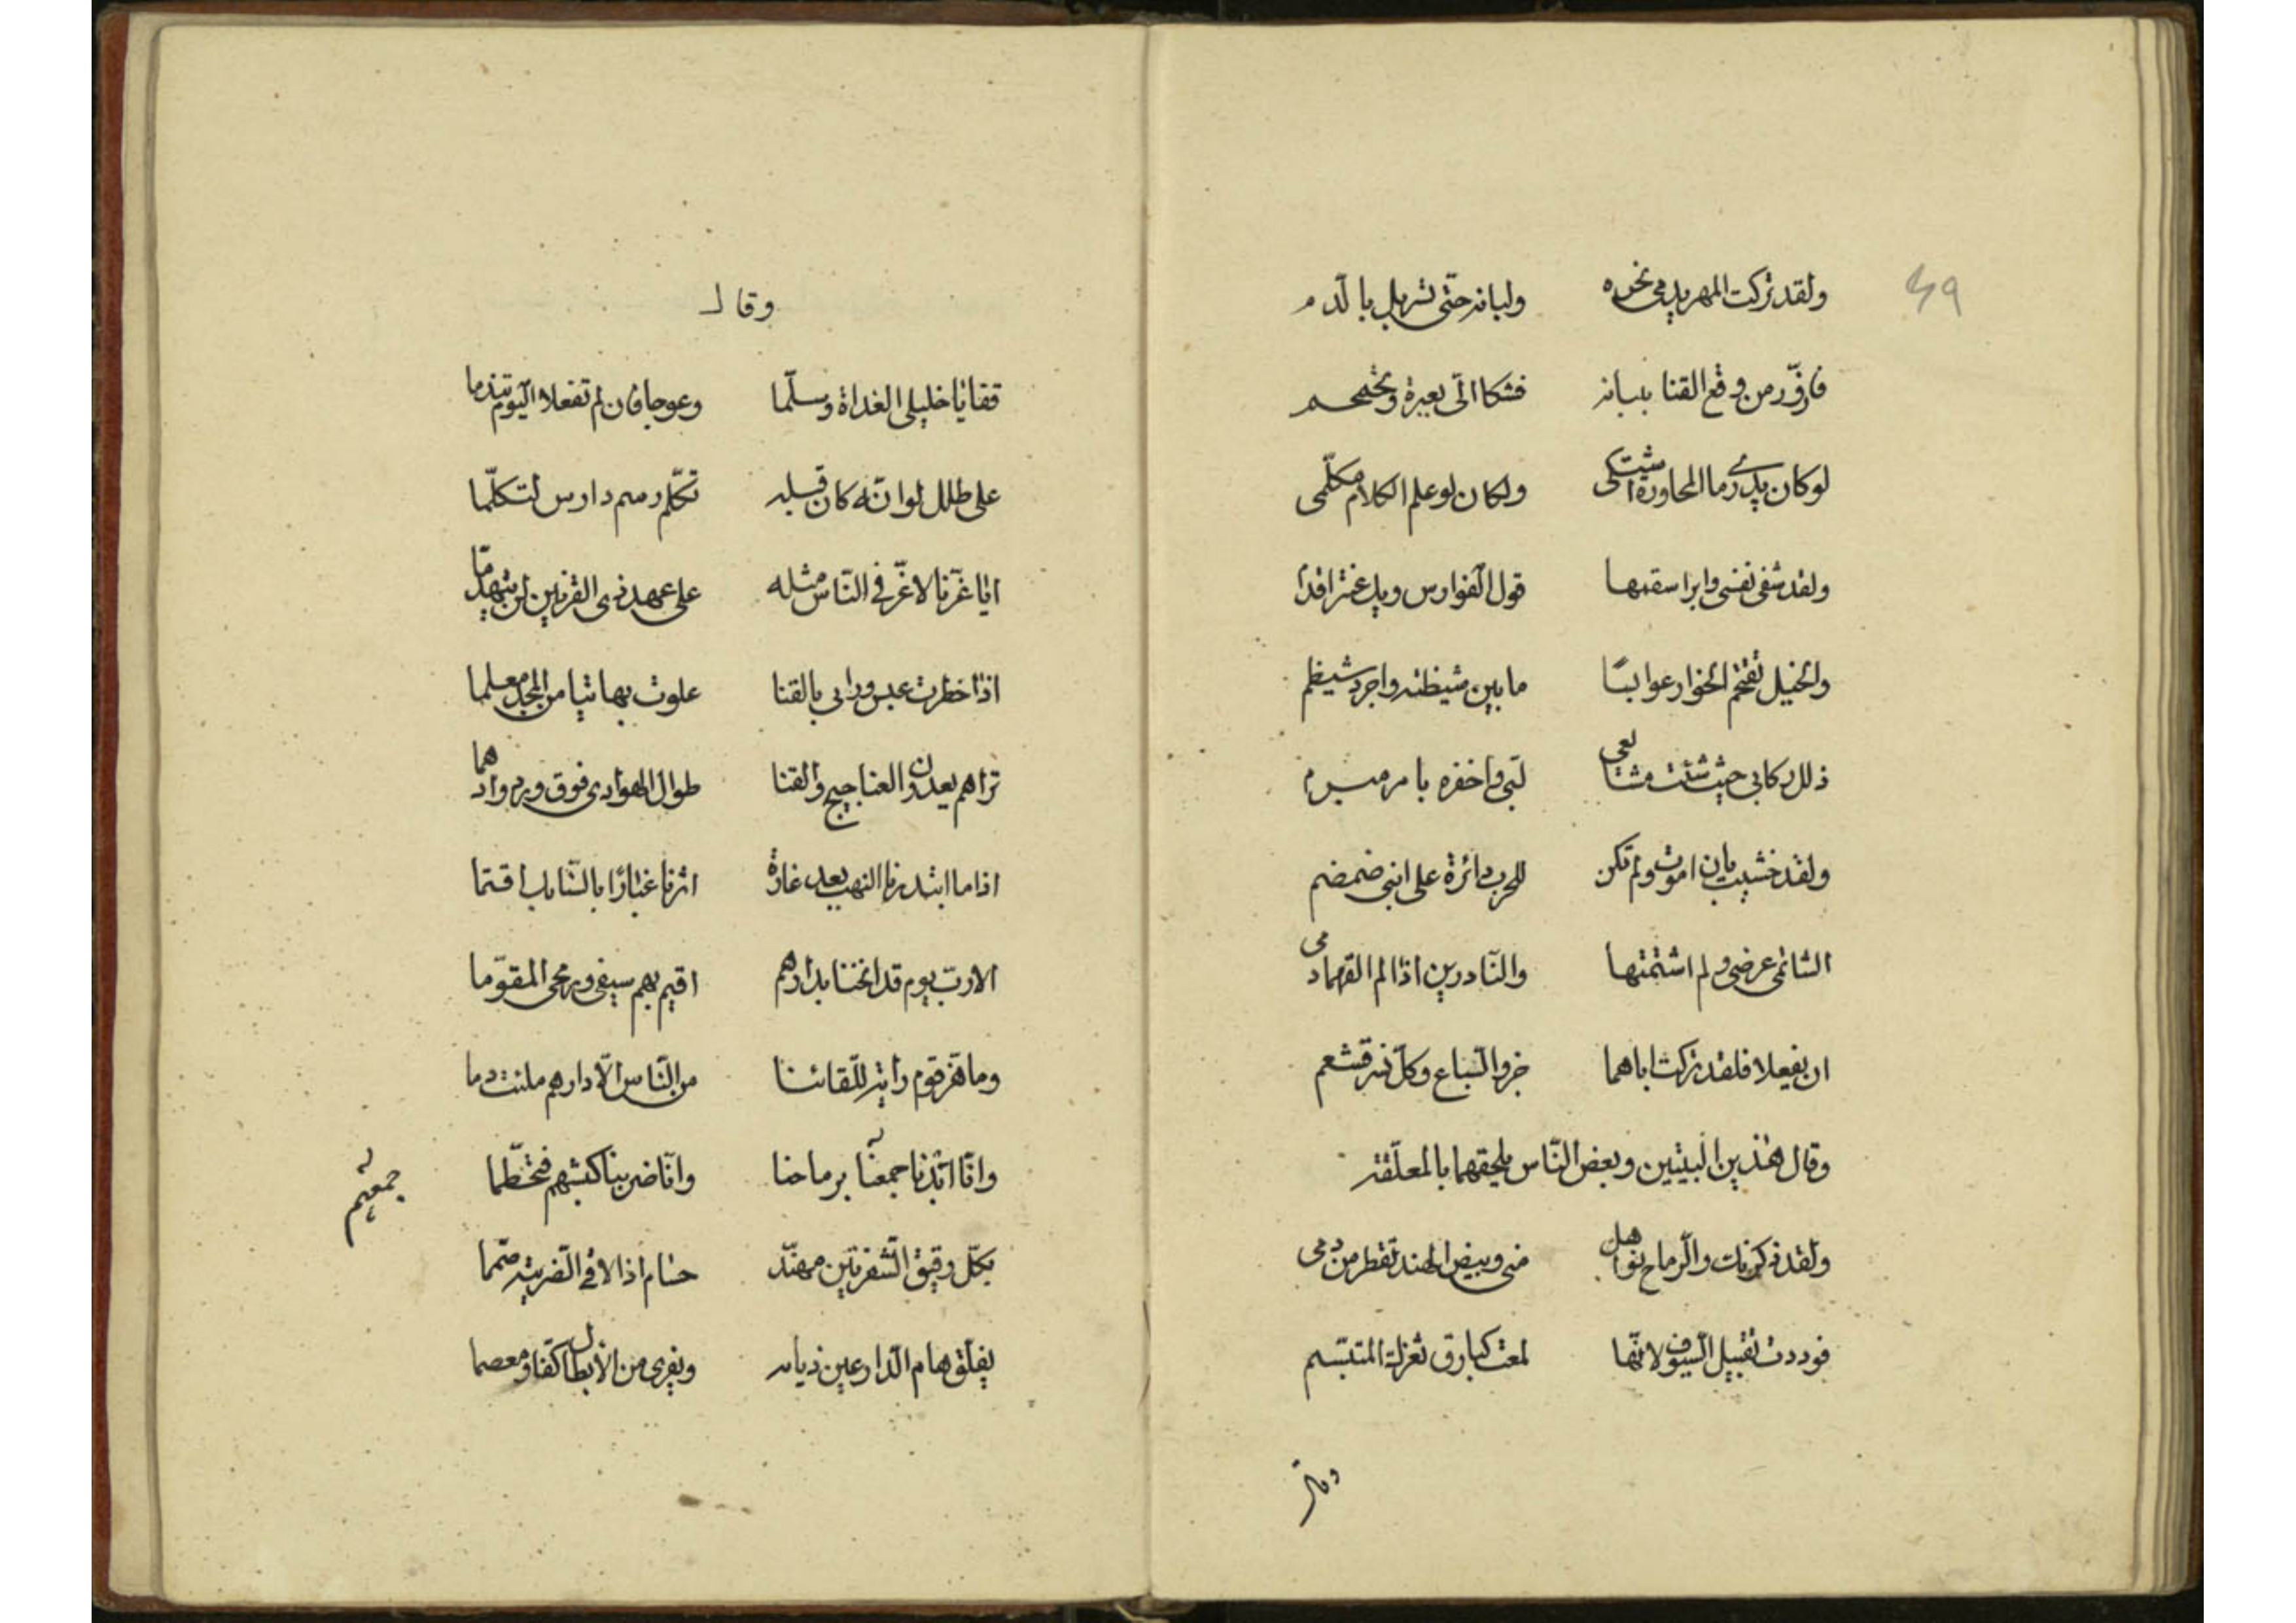 ٤٩
ولقد تركت المهر يدمى نحره ولبانه حتى تسربل بالدم
فازورّ من وقع القنا بلبانه فشكا الىّ بعبرة وتحمحم
لوكان يدرى ما المحاورة اشتكى ولكان لو علم الكلام مكلّمى
ولقد شفى نفسى وابرا سقمها قول الفوارس ويك عنتر اقدم
والخيل تقتحم الخبار عوابسًا ما بين شيظمة واجرد شيظم
ذلل ركابى حيث شئت مشايعى لبّى واحفزه بامر مبرم
ولقد خشيت بان اموت ولم تكن للحرب دائرة على ابنى ضمضم
الشاتمى عرضى ولم اشتمهما والنّاذرين اذا لم القهما دمى
ان يفعلا فلقد تركت اباهما جزر السّباع وكلّ نسر قشعم
وقال هذين البيتين وبعض النّاس يلحقهما بالمعلّقة
ولقد ذكرتك والرّماح نواهل منى وبيض الهند تقطر من دمى
فوددت تقبيل السّيوف لانّها لمعت كبارق ثغرك المتبسّم
وقال
وقال
قفا يا خليلى الغداة وسلّما وعوجا فان لم تفعلا اليوم تندما
على طلل لو انّه كان قبله تكلّم رسم دارس لتكلّما
ايا عزّنا لا عزّ فى النّاس مثله على عهد ذى القرنين لن يتهدّما
اذا خطرت عبس ورائى بالقنا علوت بها بيتا من المجد معلما
تراهم يعدون العناجيج والقنا طوال الهوادى فوق ورد وادهما
اذا ما ابتدرنا النهب بعد غارة اثرنا غبارًا بالسّنابك اقتما
الا ربّ يوم قد انخنا بدارهم اقيم بهم سيفى ورمحى المقوّما
وما هزّ قوم راية للّقائنا من النّاس الّا دارهم ملئت دما
وانّا ابدنا جمعنا برماحنا وانّا ضربنا كبشهم فتحطّما
جمعهم
بكلّ رقيق الشّفرتين مهنّد حسام اذا لاقى الضّريبة صمّما
يفلّق هام الدّارعين ذبابه ويفرى من الأبطال كفّا ومعصما